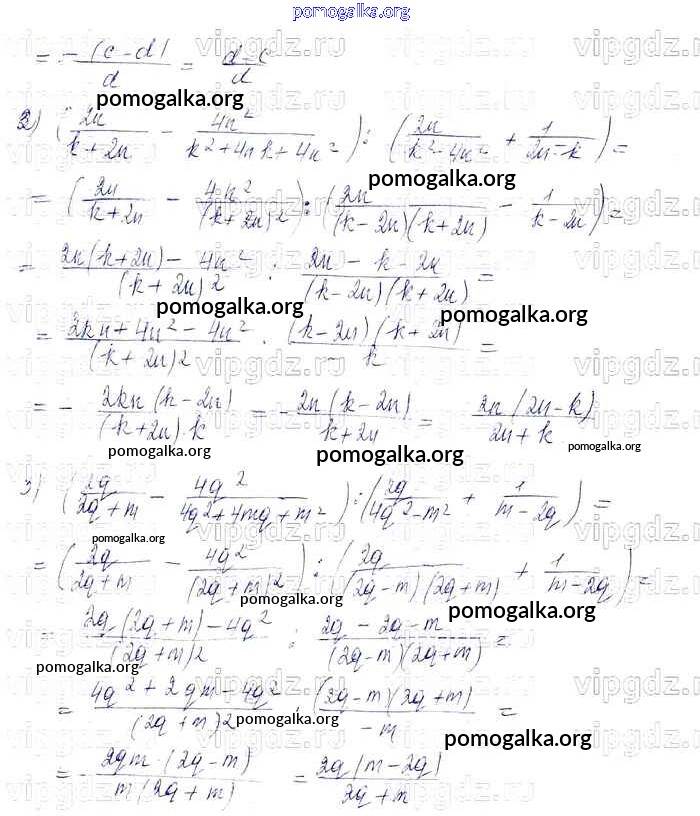 pomogalka.org
= -(c-d)/d = d-c/d
pomogalka.org
2) (2n/(k+2n) - 4n²/(k²+4nk+4n²)) : (2n/(k²-4n²) + 1/(2n-k)) =
pomogalka.org
= (2n/(k+2n) - 4n²/(k+2n)2) : (2n/((k-2n)(k+2n)) - 1/(k-2n)) =
= (2n(k+2n) - 4n²)/(k+2n)2 : (2n-k-2n)/((k-2n)(k+2n)) =
pomogalka.org pomogalka.org
= (2kn+4n²-4n²)/(k+2n)2 · (k-2n)(k+2n)/k =
= - 2kn(k-2n)/((k+2n)·k) = - 2n(k-2n)/(k+2n) = 2n(2n-k)/(2n+k)
pomogalka.org pomogalka.org pomogalka.org
3) (2q/(2q+m) - 4q²/(4q²+4mq+m²)) : (2q/(4q²-m²) + 1/(m-2q)) =
pomogalka.org
= (2q/(2q+m) - 4q²/(2q+m)2) : (2q/((2q-m)(2q+m)) + 1/(m-2q)) =
pomogalka.org pomogalka.org
= (2q(2q+m) - 4q²)/(2q+m)2 : (2q-2q-m)/((2q-m)(2q+m)) =
pomogalka.org
= (4q²+2qm-4q²)/(2q+m)2 · (2q-m)(2q+m)/-m =
pomogalka.org pomogalka.org
= - 2qm·(2q-m)/(m(2q+m)) = 2q(m-2q)/(2q+m)
vipgdz.ru